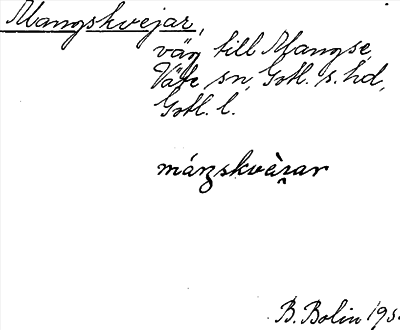 Mangskvejar,
väg till Mangse,
Väte sn, Gotl. s. hd,
Gotl. l.
mángskvὲi̯ar
B. Bolin 195